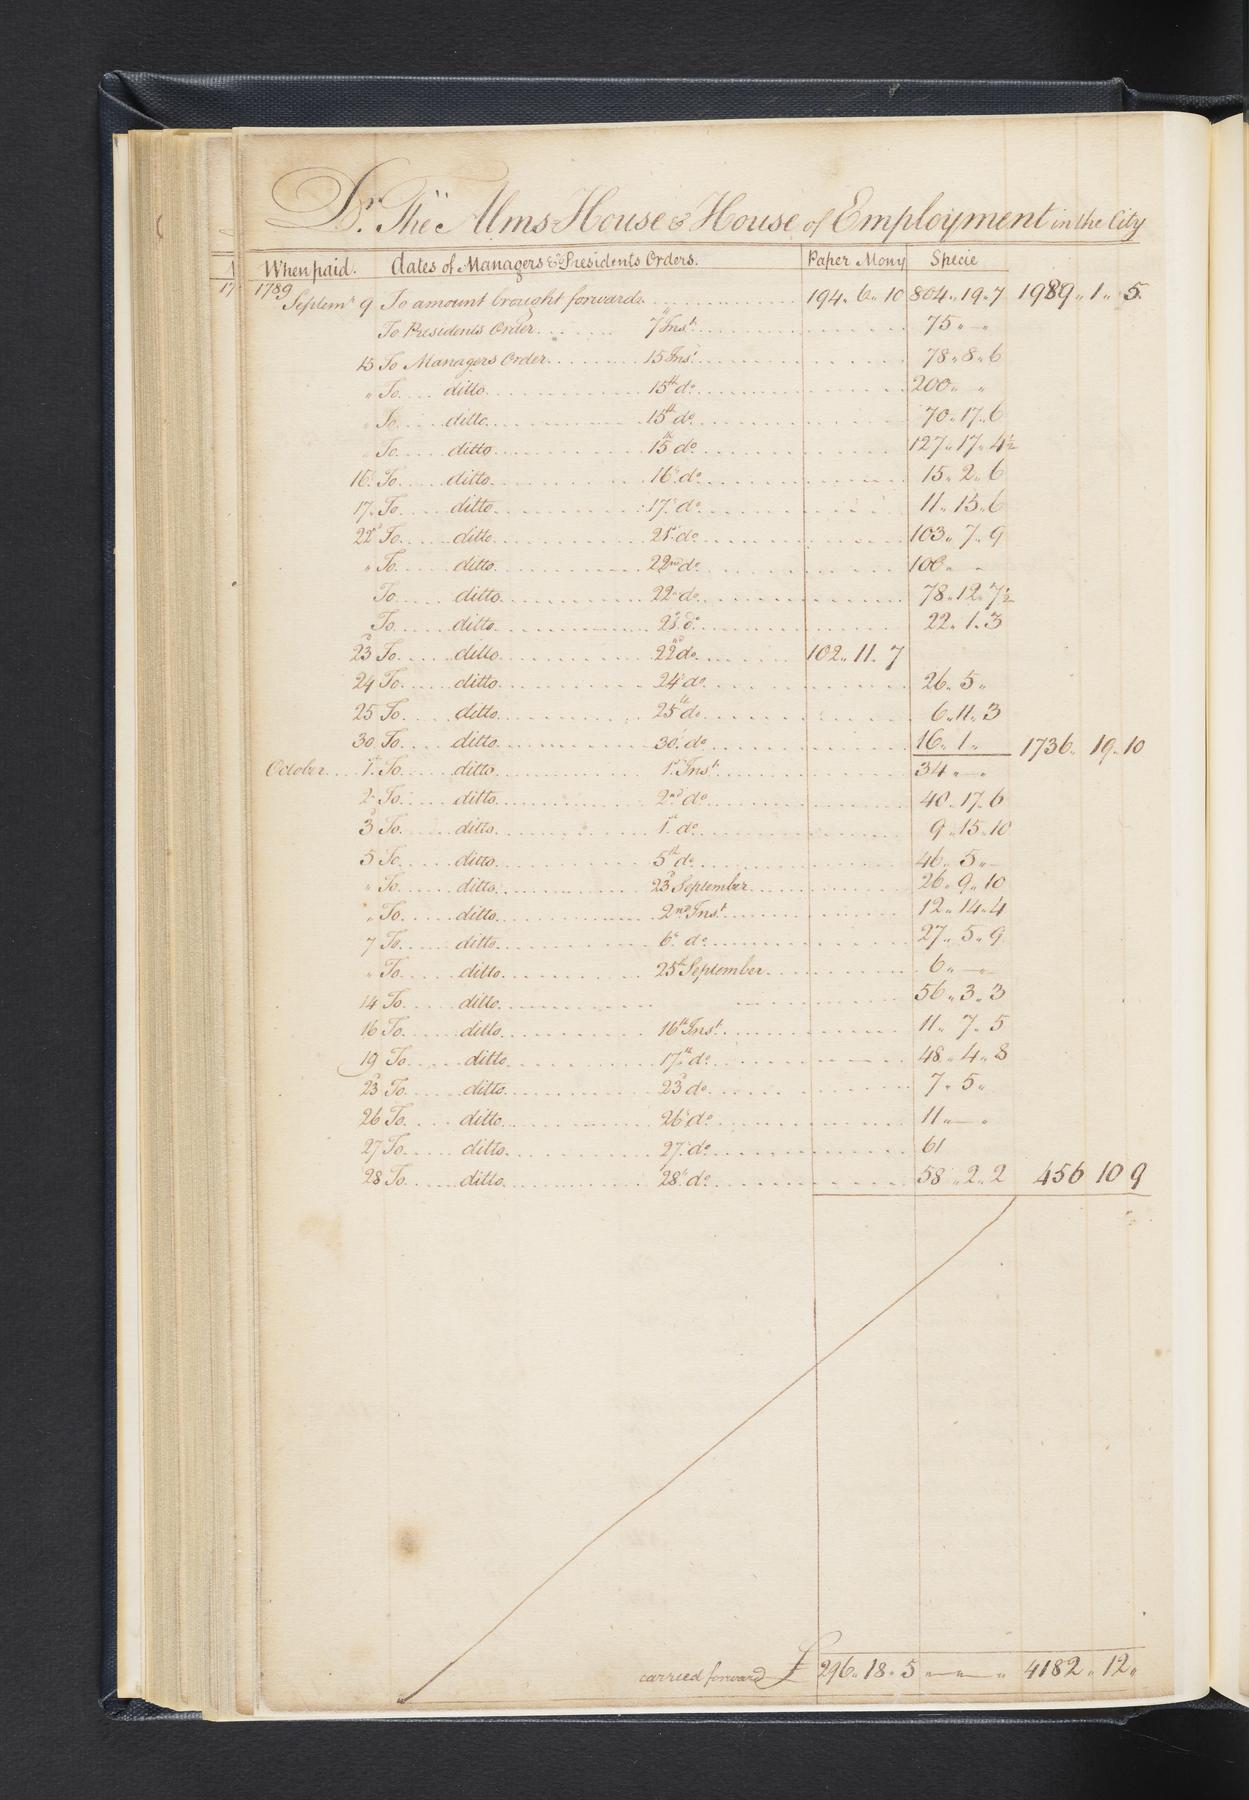 Dr. The Alms House & House of Employment in the City
When paid. dates of Managers & Presidents Orders. Paper Mony Specie
1789
Septemr 9 To amount brought forwards 194. 6. 10 804. 19. 7 1989. 1. 5
To Presidents Order 7th Inst. 75 " — "
15 To Managers Order 15 Inst. 78. 8. 6
" To ditto 15th do. 200 " "
" To ditto 15th do. 70. 17. 6
" To ditto 15th do. 127. 17. 4½
16 To ditto 16th do. 15. 2. 6
17 To ditto 17th do. 11. 15. 6
22d To ditto 21st do. 103. 7. 9
" To ditto 22nd do. 100 " "
To ditto 22nd do. 78. 12. 7½
To ditto 21st do. 22. 1. 3
23 To ditto 22nd do. 102. 11. 7
24 To ditto 24th do. 26. 5 "
25 To ditto 25th do. 6. 11. 3
30 To ditto 30th do. 16. 1 " 1736. 19. 10
October 1st To ditto 1st Inst. 34 " — "
2d To ditto 2nd do. 40. 17. 6
3d To ditto 1st do. 9. 15. 10
5 To ditto 5th do. 46. 5 " —
" To ditto 23d September 26. 9. 10
" To ditto 2nd Inst. 12. 14. 4
7 To ditto 6th do. 27. 5. 9
" To ditto 25th September 6 " — "
14 To ditto 56. 3. 3
16 To ditto 16th Inst. 11. 7. 5
19 To ditto 17th do. 48. 4. 8
23d To ditto 23d do. 7. 5 "
26 To ditto 26th do. 11 " — "
27 To ditto 27th do. 61
28 To ditto 28th do. 58. 2. 2 456 10 9
carried forward £ 296. 18. 5 " — " — " 4182. 12 "